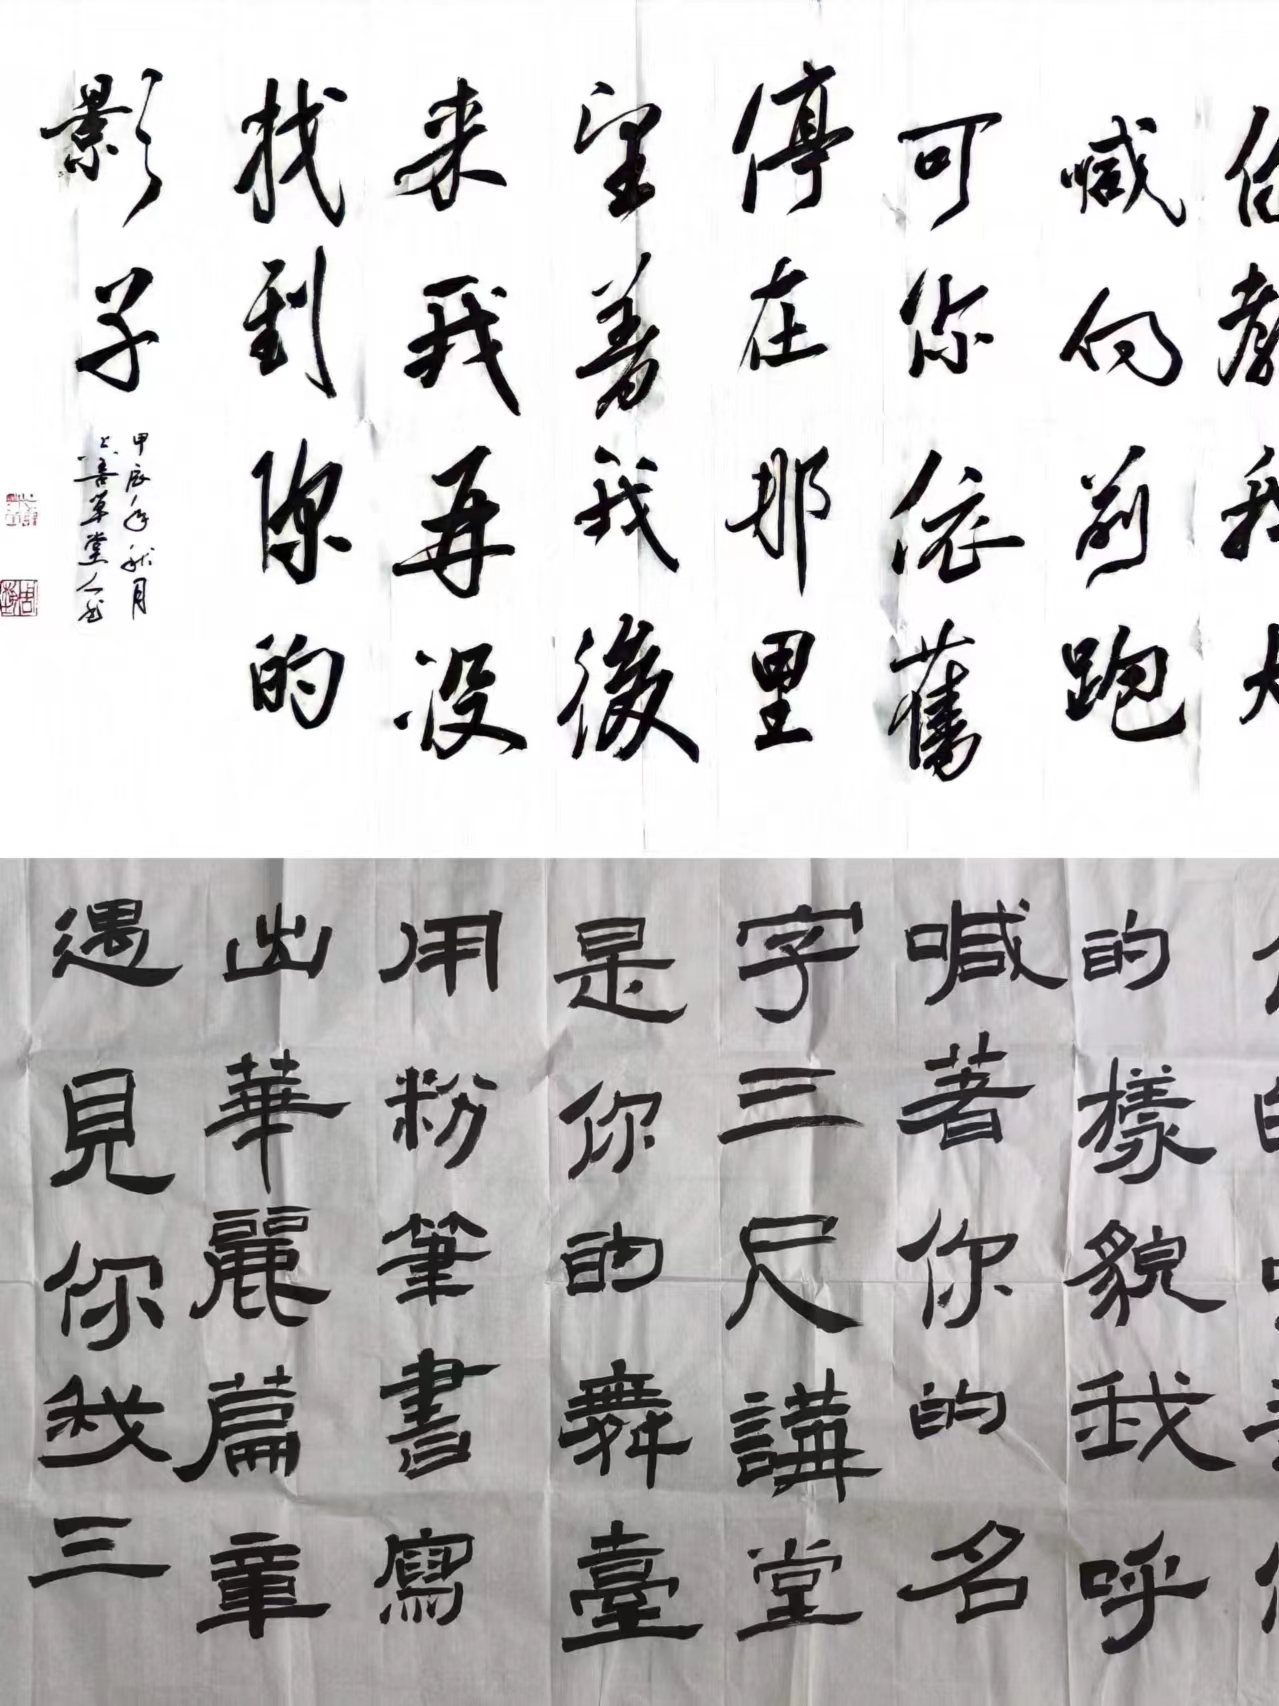 喊向前跑
可你依舊
停在那里
望着我後
来我再没
找到你的
影子
甲辰年秋月
上善草堂人书
的樣貌我呼
喊著你的名
字三尺講堂
是你的舞臺
用粉筆書寫
出華麗篇章
遇見你我三